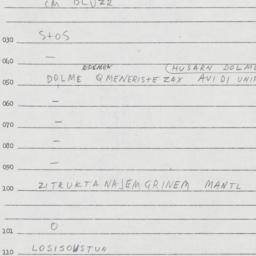 CM BLUZZ
030 StoS
040 —
EDEMEN (HUSARN DOLME
050 DOLME QMENERISTE ZAX AVI DI UNIF
060 —
070 —
080 —
090 —
100 ZITRUKTA NAJEM GRINEM MANTL
101 O
110 LOSISOUSTUA